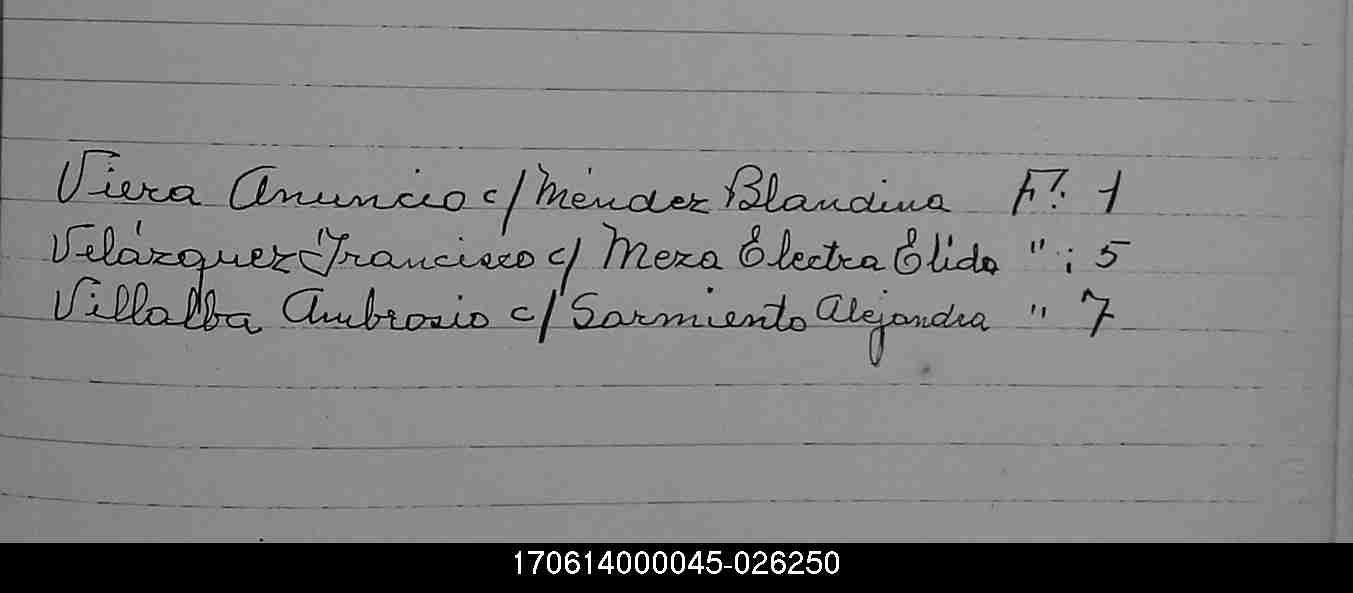 Viera Anuncio c/ Méndez Blandina Fº. 1
Velázquez Francisco c/ Meza Electra Elida " : 5
Villalba Ambrosio c/ Sarmiento Alejandra " 7
170614000045-026250